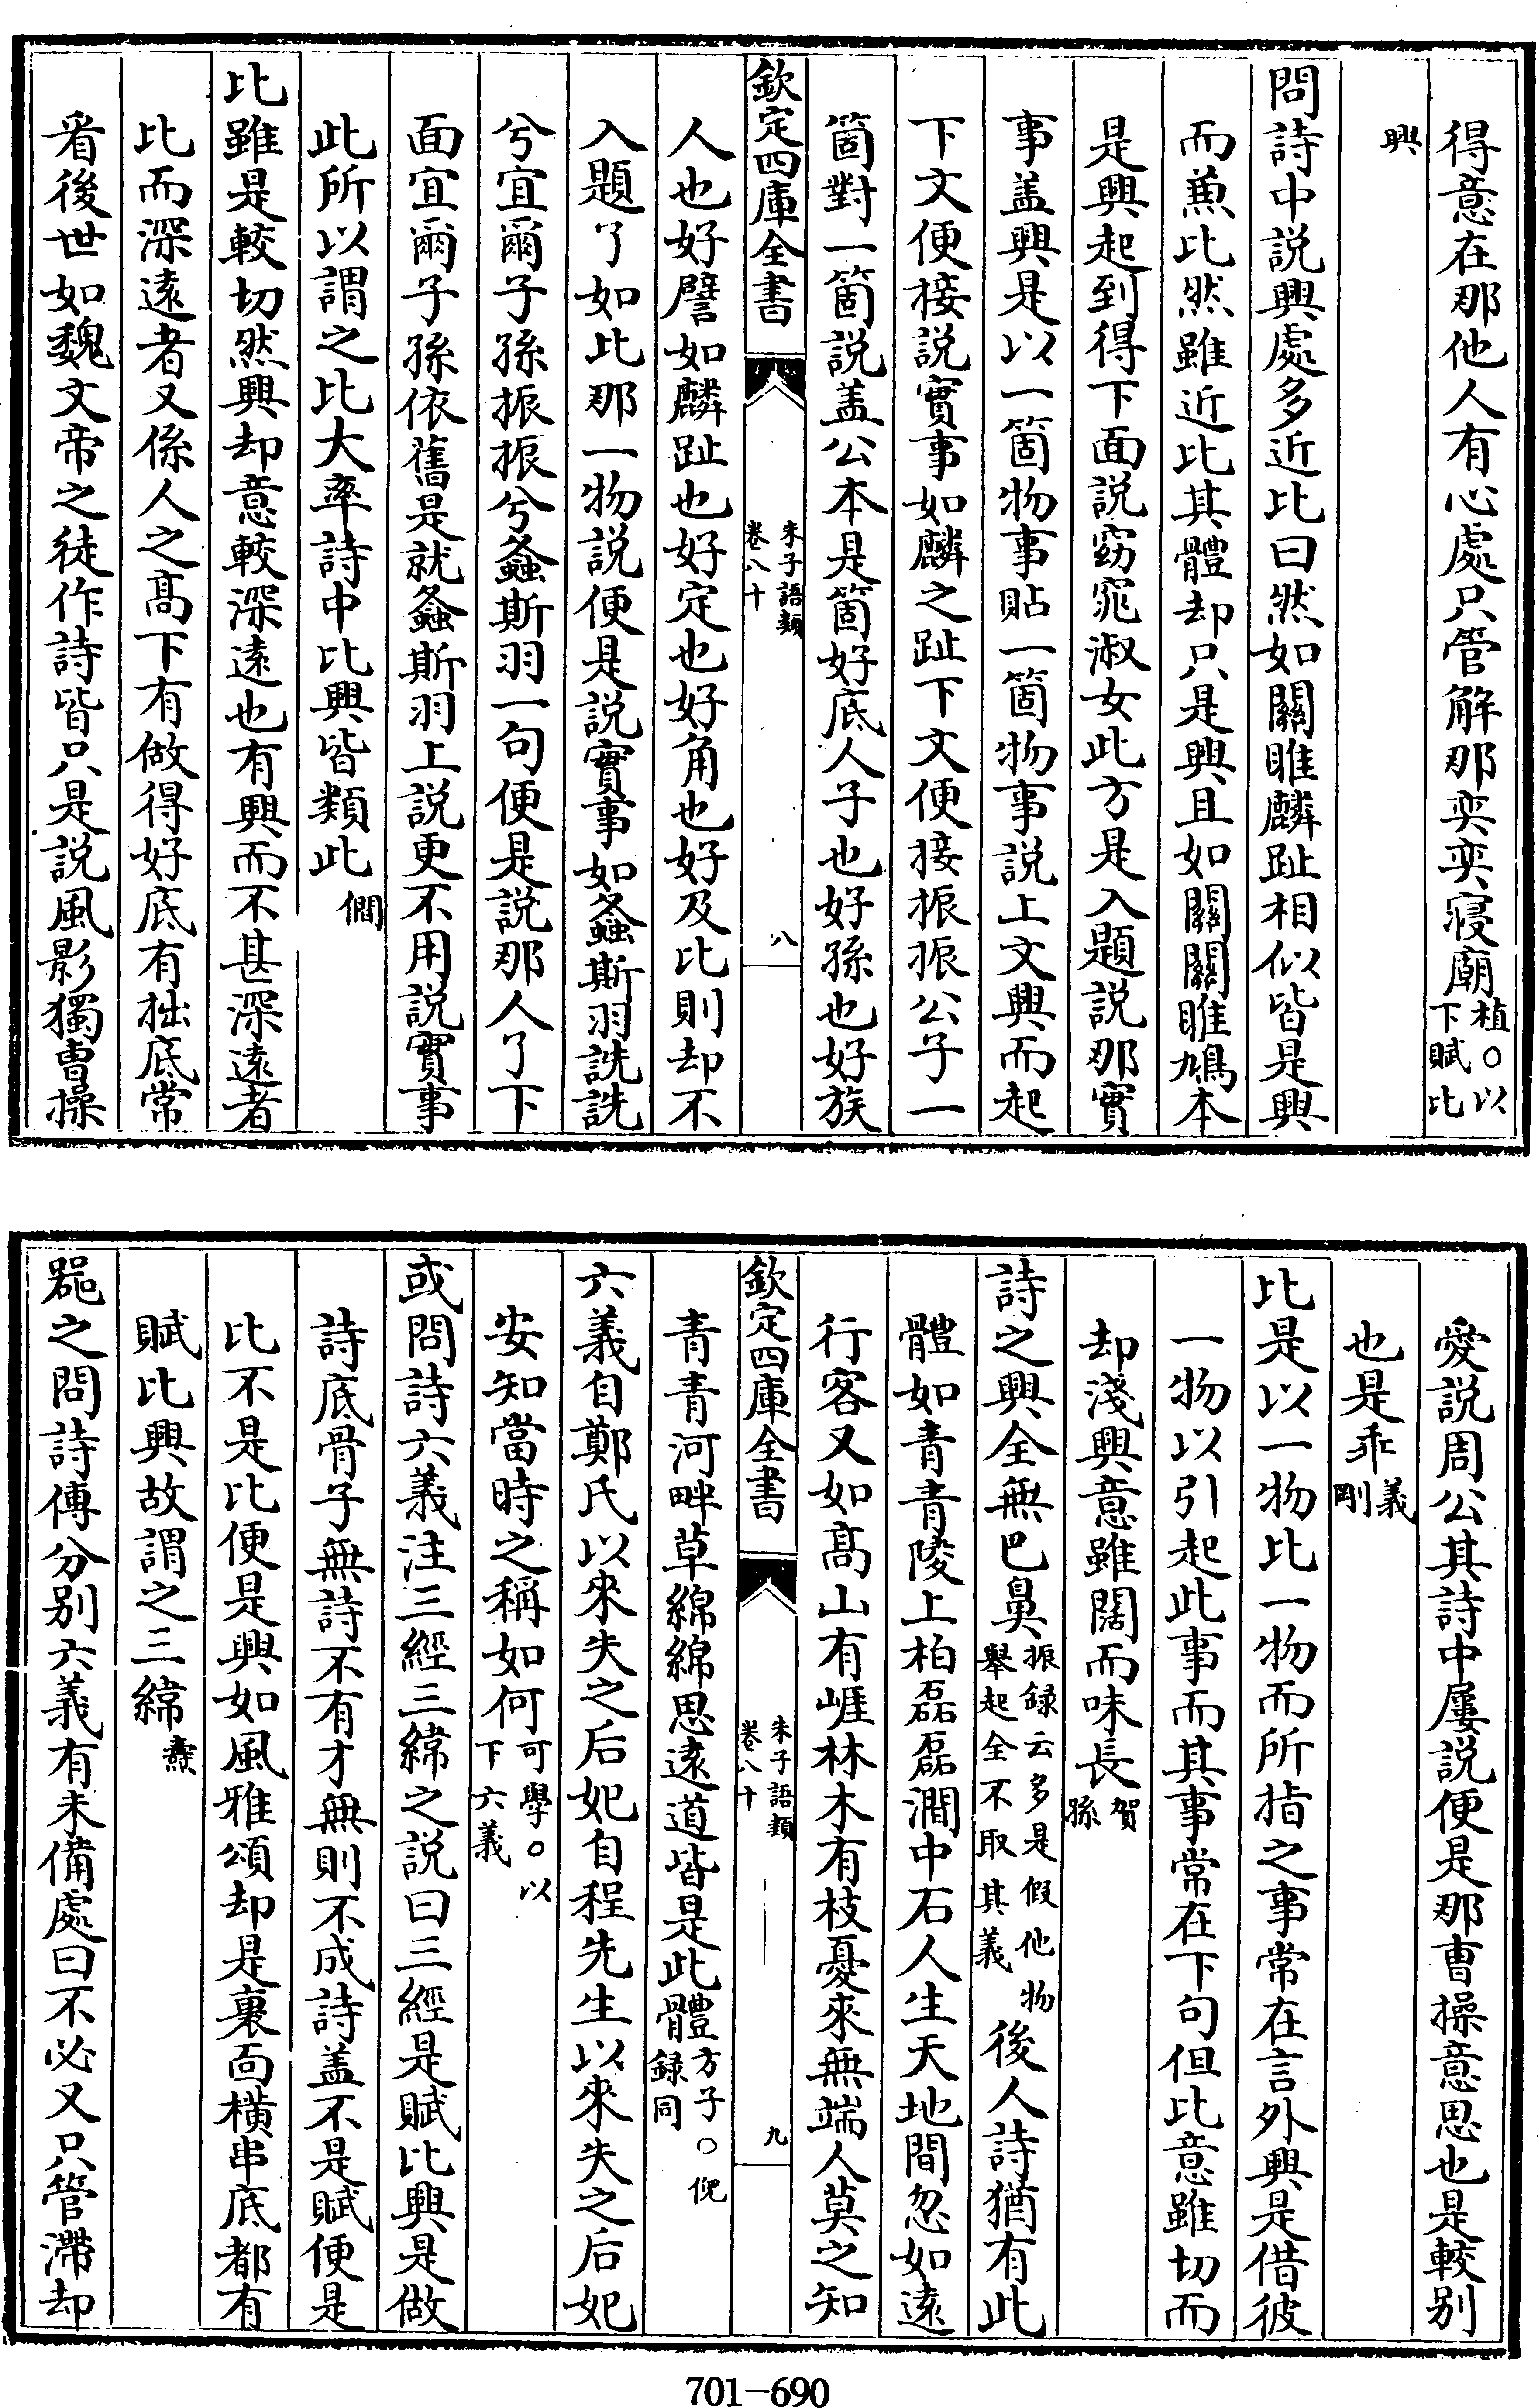 得意在那他人有心處只管解那奕奕寢廟植○以下賦比
興
問詩中説興處多近比曰然如關雎麟趾相似皆是興
而兼比然雖近比其體却只是興且如關關雎鳩本
是興起到得下面説窈窕淑女此方是入題説那實
事盖興是以一箇物事貼一箇物事説上文興而起
下文便接説實事如麟之趾下文便接振振公子一
箇對一箇説盖公本是箇好底人子也好孫也好族
欽定四庫全書
朱子語類
卷八十
八
人也好譬如麟趾也好定也好角也好及比則却不
入題了如比那一物説便是説實事如螽斯羽詵詵
兮宜爾子孫振振兮螽斯羽一句便是説那人了下
面宜爾子孫依舊是就螽斯羽上説更不用説實事
此所以謂之比大率詩中比興皆類此僩
比雖是較切然興却意較深遠也有興而不甚深遠者
比而深遠者又係人之髙下有做得好底有拙底常
㸔後世如魏文帝之徒作詩皆只是説風影獨曹操
愛説周公其詩中屢説便是那曹操意思也是較别
也是乖義剛
比是以一物比一物而所指之事常在言外興是借彼
一物以引起此事而其事常在下句但比意雖切而
却淺興意雖闊而味長賀孫
詩之興全無巴鼻振録云多是假他物舉起全不取其義後人詩猶有此
體如青青陵上柏磊磊澗中石人生天地間忽如遠
行客又如髙山有崖林木有枝憂來無端人莫之知
欽定四庫全書
朱子語類
卷八十
九
青青河畔草綿綿思遠道皆是此體方子○倪録同
六義自鄭氏以來失之后妃自程先生以來失之后妃
安知當時之稱如何可學○以下六義
或問詩六義注三經三緯之説曰三經是賦比興是做
詩底骨子無詩不有才無則不成詩盖不是賦便是
比不是比便是興如風雅頌却是裏面横串底都有
賦比興故謂之三緯燾
器之問詩傳分别六義有未備處曰不必又只管滯却
701-690